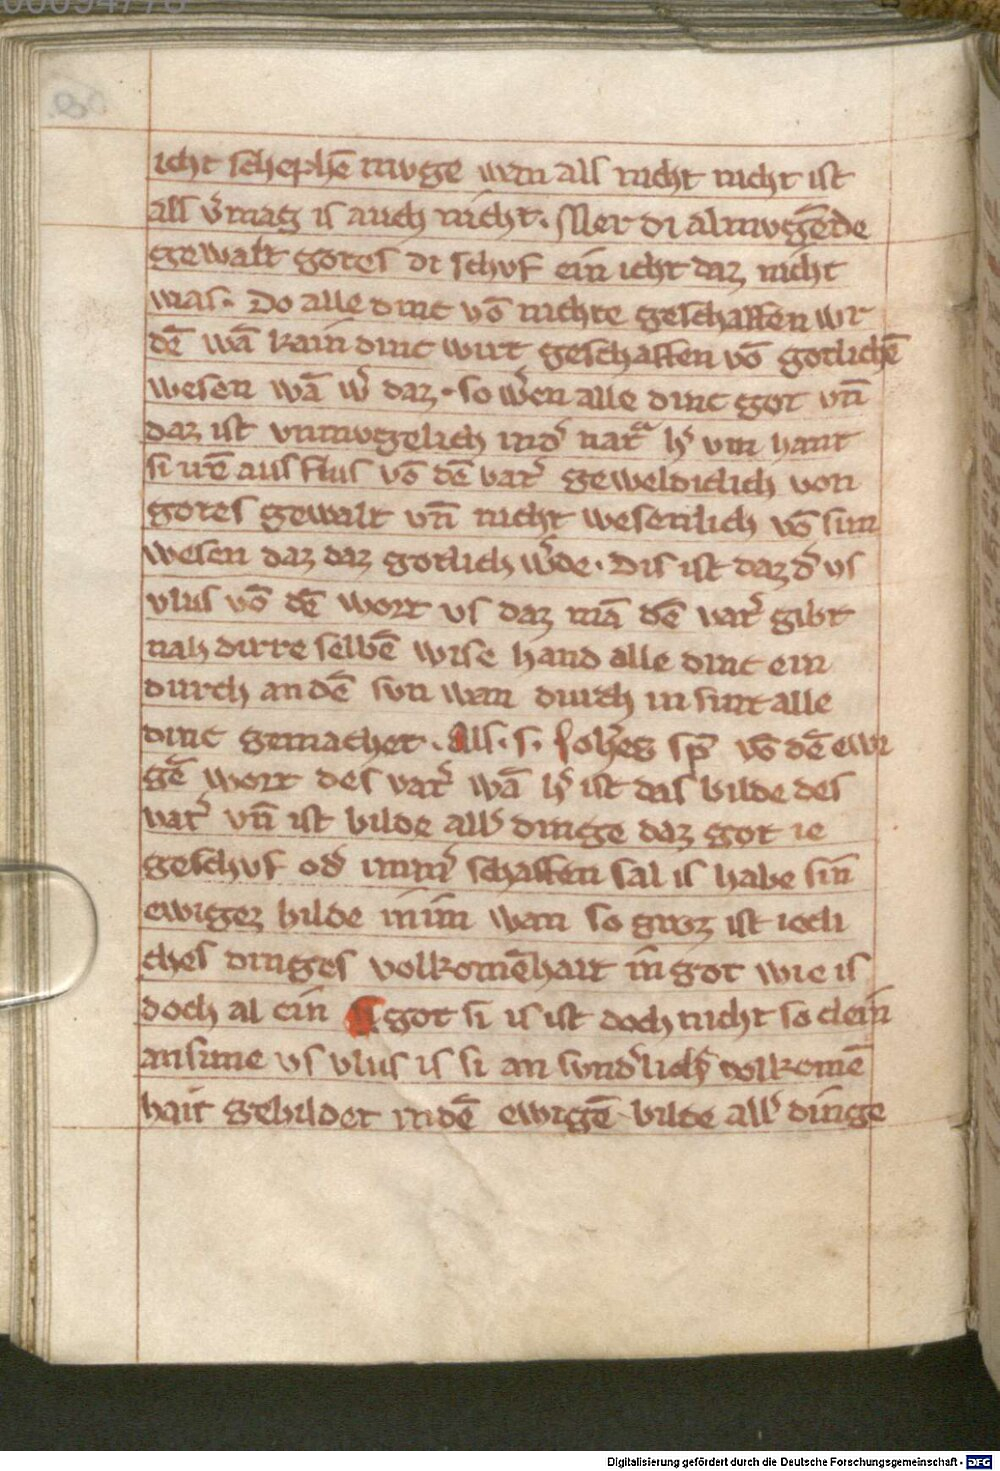 icht schephē mvge wan als nicht nicht ist
als v̓mag is auch nicht. Mer di almvgēde
gewalt gotes di schvf ein icht daz nicht
was. Do alle dinc vō nichte geschaffen wr
dē wā kain dinc wirt geschaffen vō gotlichē
wesen wā w̓ daz. so w̓en alle dinc got vn̄
daz ist vnmvgelich ind̓ natᵃ h̓ vm hant
si irē aus flus vō dē vat̓ geweldiclich von
gotes gewalt vn̄ nicht wesenlich vō sim
wesen daz daz gotlich w̓de. Dis ist daz d̓ vs
vlus vō dē wort vs daz mā dē vat̓ gibt
nah dirre selbē wise hand alle dinc ein
durch an dē svn wan durch in sint alle
dinc gemachet. Als. s. Joh̓es sp̄ vō dē ewi
gē wort des vat̓ wā h̓ ist das bilde des
vat̓ vn̄ ist bilde all̓ dinge daz got ie
geschvf od̓ imm̓ schaffen sal is habe sin
ewigez bilde inim wan so groz ist iecli
ches dinges volkomēhait in got wie is
doch al ein got si is ist doch nicht so clein
an sime vs vlus is si an svnd̓lich̓ volkomē
hait gebildet in dē ewigē bilde all̓ dinge
Digitalisierung gefördert durch die Deutsche Forschungsgemeinschaft - DFG